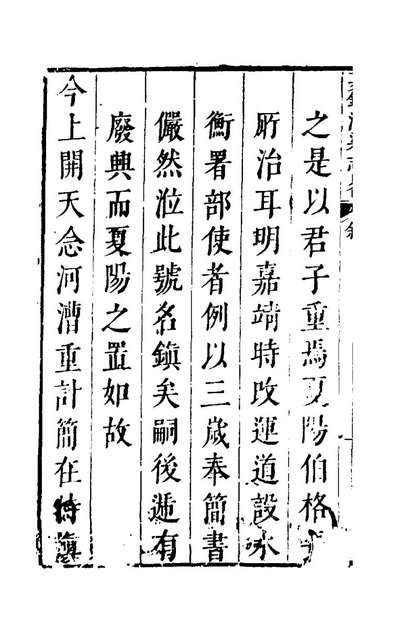 之是以君子重焉夏陽伯格
所治耳明嘉靖時改運道設水
衡署部使者例以三歲奉簡書
儼然涖此號名鎮矣嗣後遞有
廢興而夏陽之置如故
今上開天念河漕重計簡在